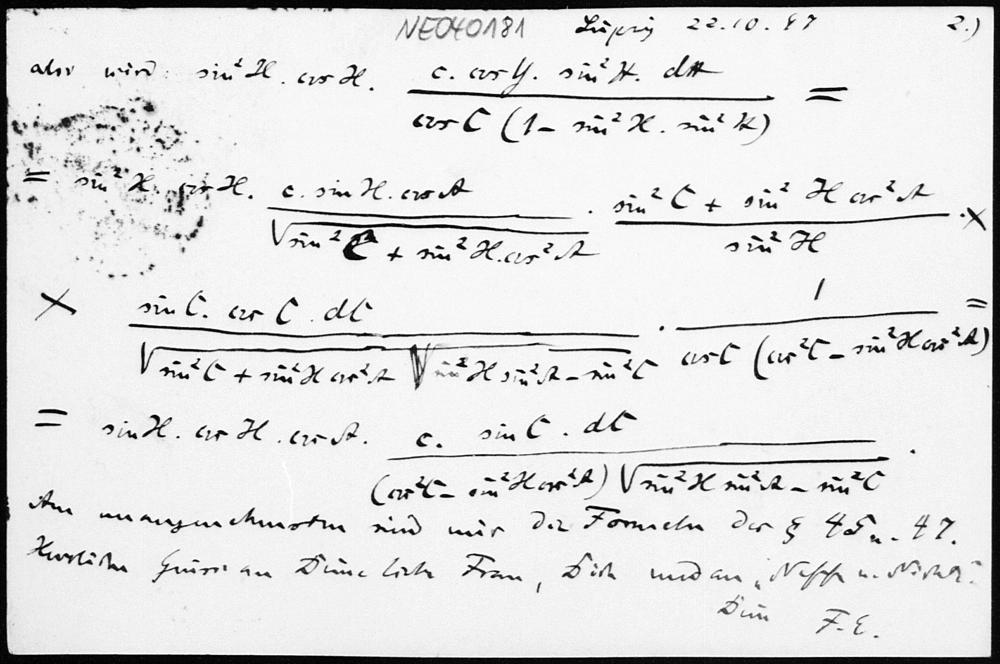 NE040181 Leipzig 22.10.97 2.)
also wird: sin²H. cos H. c. cos y. sin²H. dH / cos C (1 - sin²H. sin²H) =
= sin²H. cos H. c. sin H. cos A / √sin²C + sin²H. cos²A . sin²C + sin²H cos²A / sin²H . ×
× sin C. cos C. dC / √sin²C + sin²H cos²A √sin²H sin²A - sin²C . 1 / cos C (cos²C - sin²H cos²A) =
= sin H. cos H. cos A. c. sin C. dC / (cos²C - sin²H cos²A) √sin²H sin²A - sin²C .
Am unangenehmsten sind mir die Formeln der § 45 u. 47.
Herzliche Grüsse an Deine liebe Frau, Dich und an „Neffe u. Nichte".
Dein F. E.